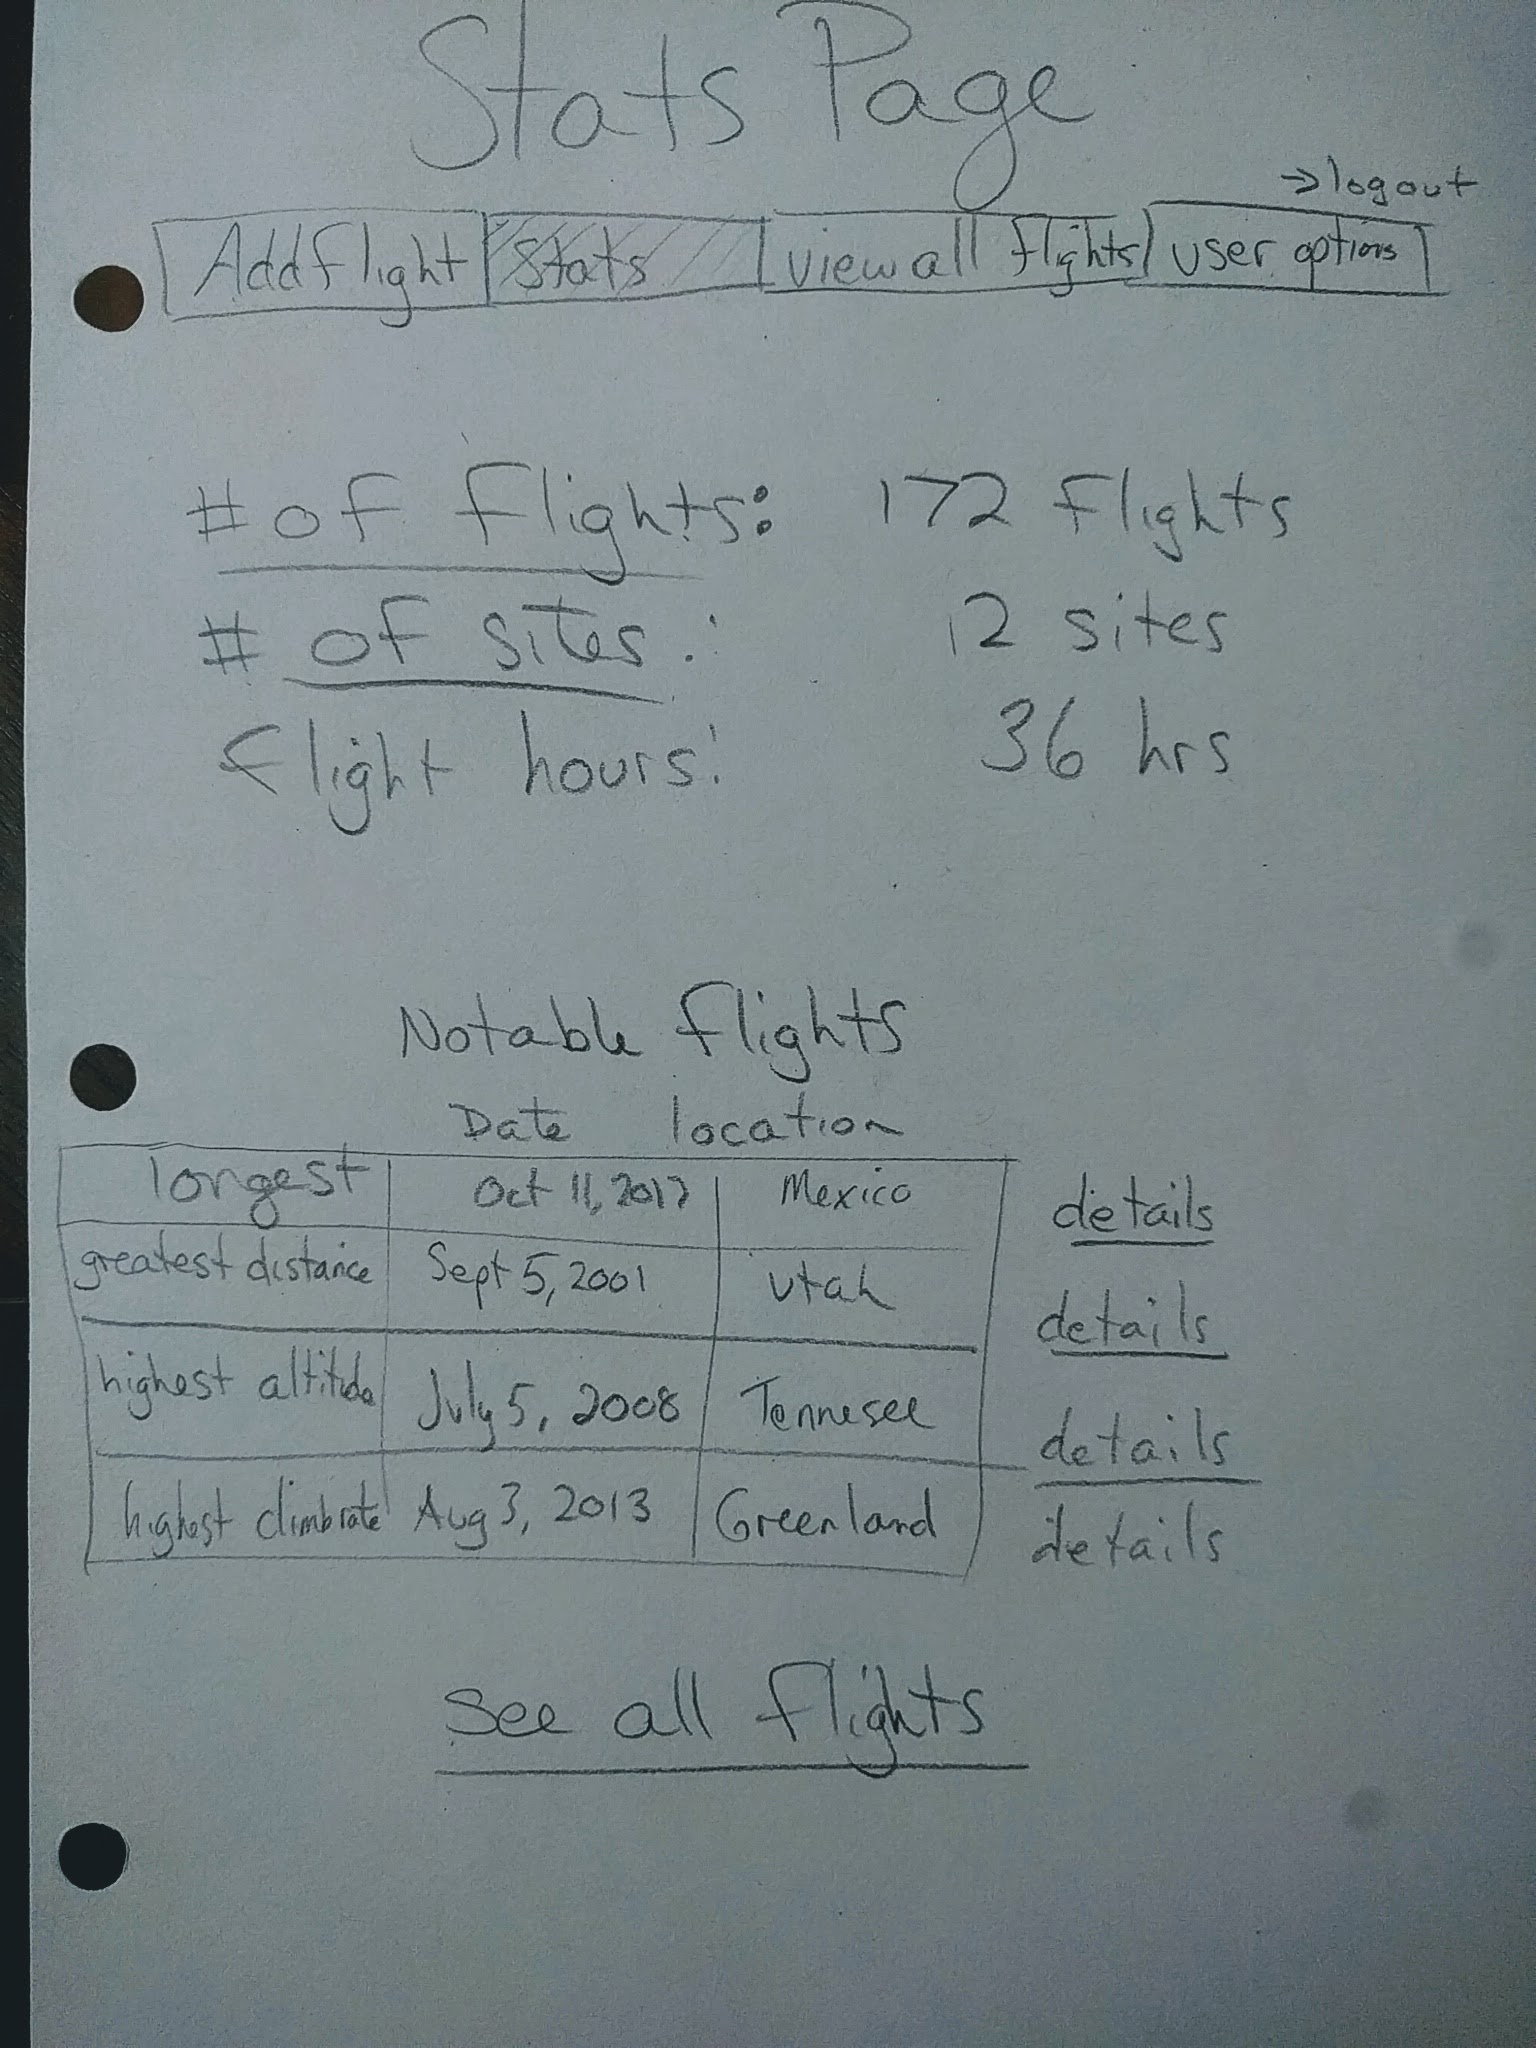 Stats Page
→ logout
Add flight stats view all flights user options
# of flights: 172 flights
# of sites: 12 sites
flight hours: 36 hrs
Notable flights
Date location
longest Oct 11, 2017 Mexico details
greatest distance Sept 5, 2001 utah details
highest altitude July 5, 2008 Tennesee details
highest climbrate Aug 3, 2013 Greenland details
see all flights